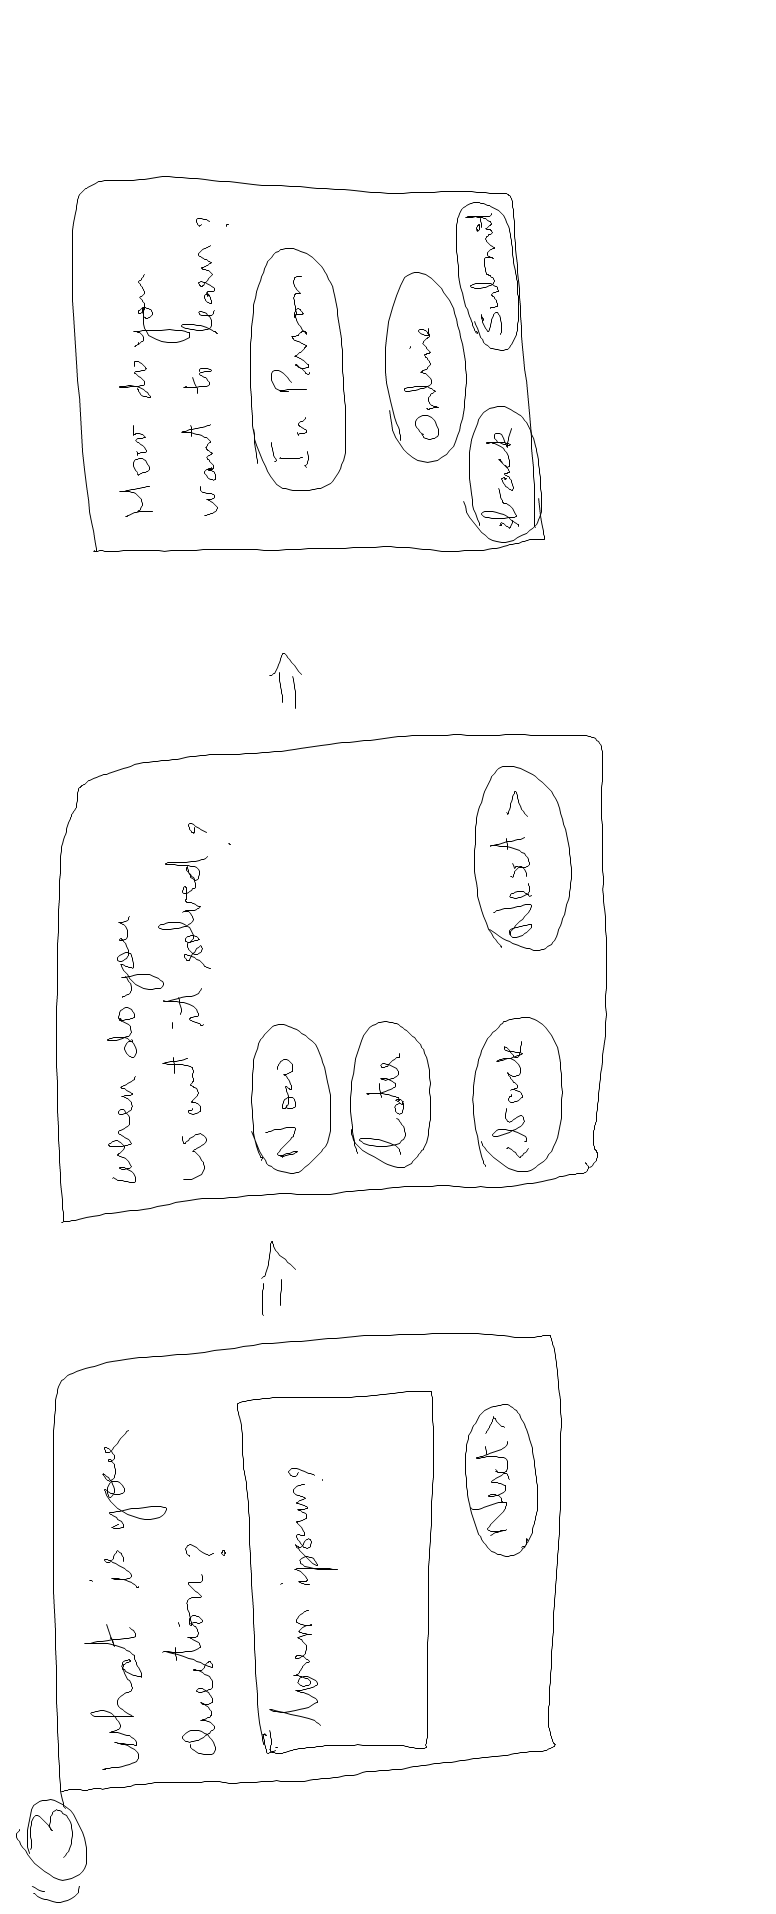 3
What is your
question?
Lorem ipsum?
Next >
when do you
want it solved?
Now
Later
<back
Next >
How do you
want to learn?
In Person
Online
<back
Submit